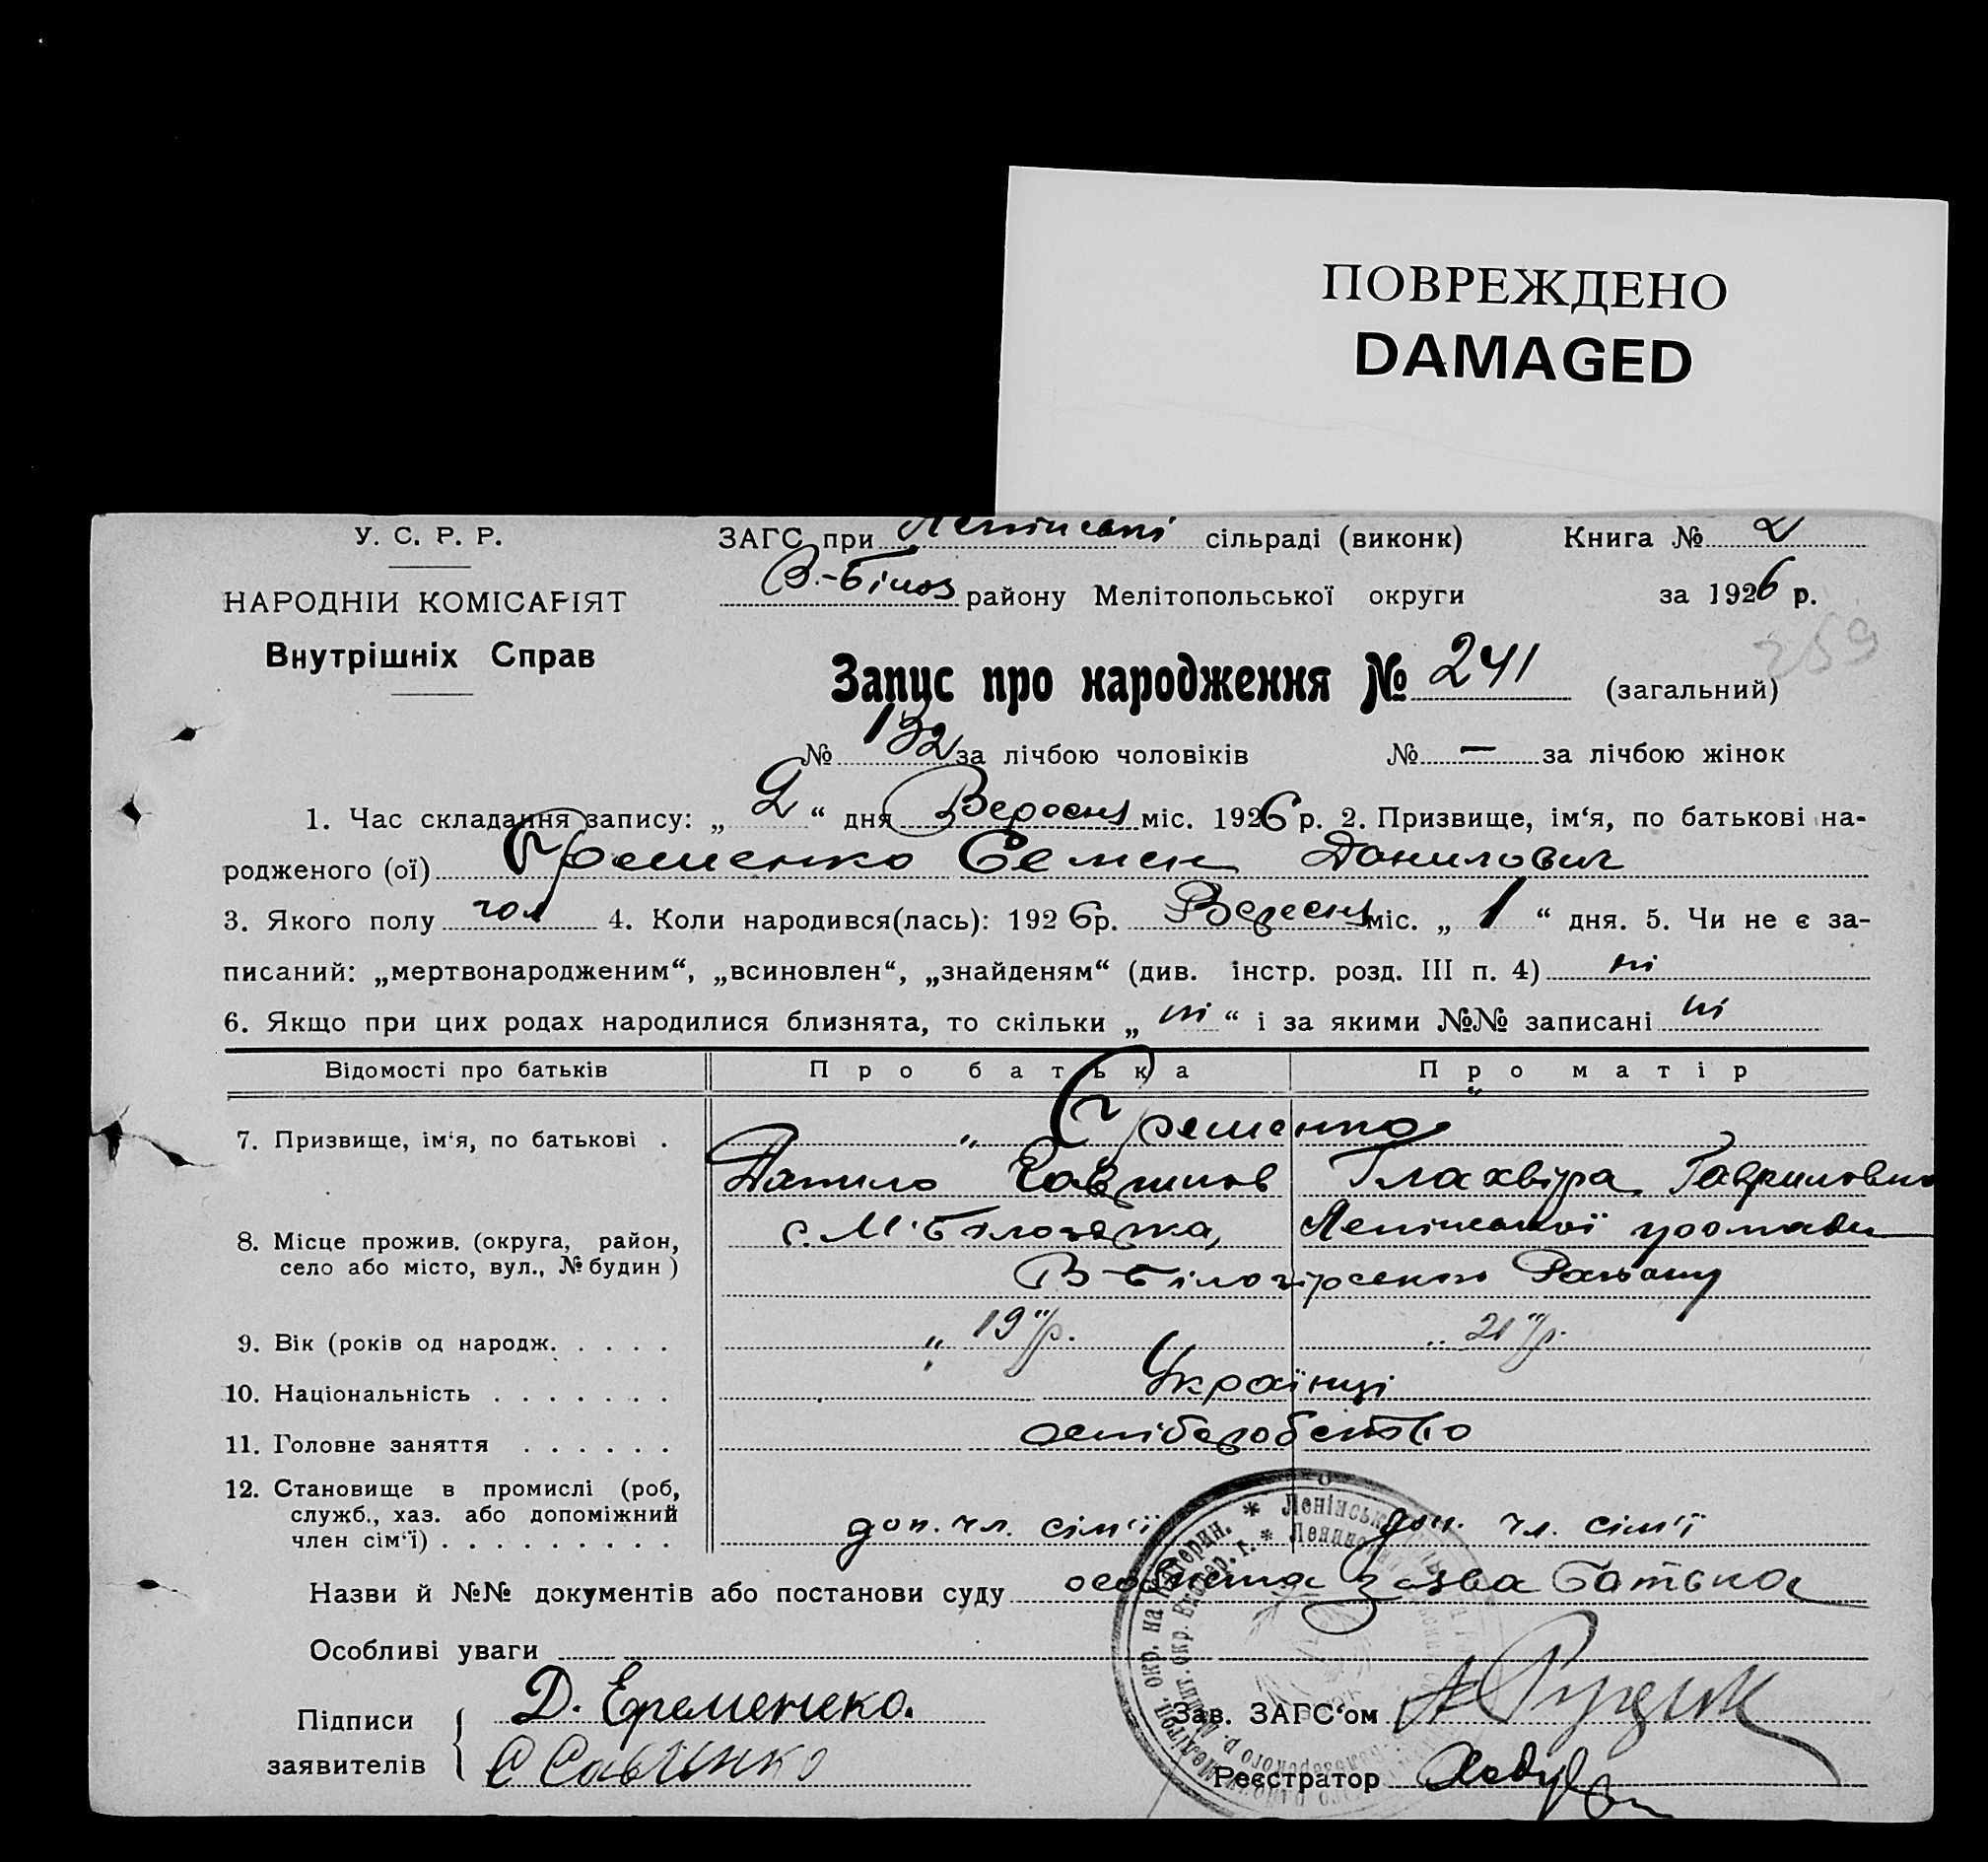 ПОВРЕЖДЕНО
DAMAGED
У. С. Р. Р.
НАРОДНІЙ КОМІСАРІЯТ
Внутрішніх Справ
ЗАГС при сільраді (виконк) Книга № 2
В.-Білоз району Мелітопольської округи за 1926 р.
259
Запис про народження № 241 (загальний)
№ 132 за лічбою чоловіків № — за лічбою жінок
1. Час складання запису: „ 2 “ дня Вересня міс. 1926 р. 2. Призвище, ім‘я, по батькові на-
родженого (ої) Єременко Семен Данилович
3. Якого полу чол 4. Коли народився(лась): 1926 р. Вересня міс. „ 1 “ дня. 5. Чи не є за-
писаний: „мертвонародженим“, „всиновлен“, „знайденям“ (див. інстр. розд. III п. 4) ні
6. Якщо при цих родах народилися близнята, то скільки „ ні “ і за якими №№ записані ні
Відомості про батьків Про батька Про матір
7. Призвище, ім‘я, по батькові . Єременко
Данило Глахвіра Гавриловна
8. Місце прожив. (округа, район, с. М. Білозерка, Ленінської громади
село або місто, вул., № будин) Району
9. Вік (років од народж. . . . . 19 р. 21 р.
10. Національність . . . . . . . Українці
11. Головне заняття . . . . . .
12. Становище в промислі (роб,
служб., хаз. або допоміжний доп. чл. сім‘ї доп. чл. сім‘ї
член сім‘ї) . . . . . . . . . .
Назви й №№ документів або постанови суду особиста заява батька
Особливі уваги
Підписи Д. Еременеко. Зав. ЗАГС‘ом
заявителів Реєстратор